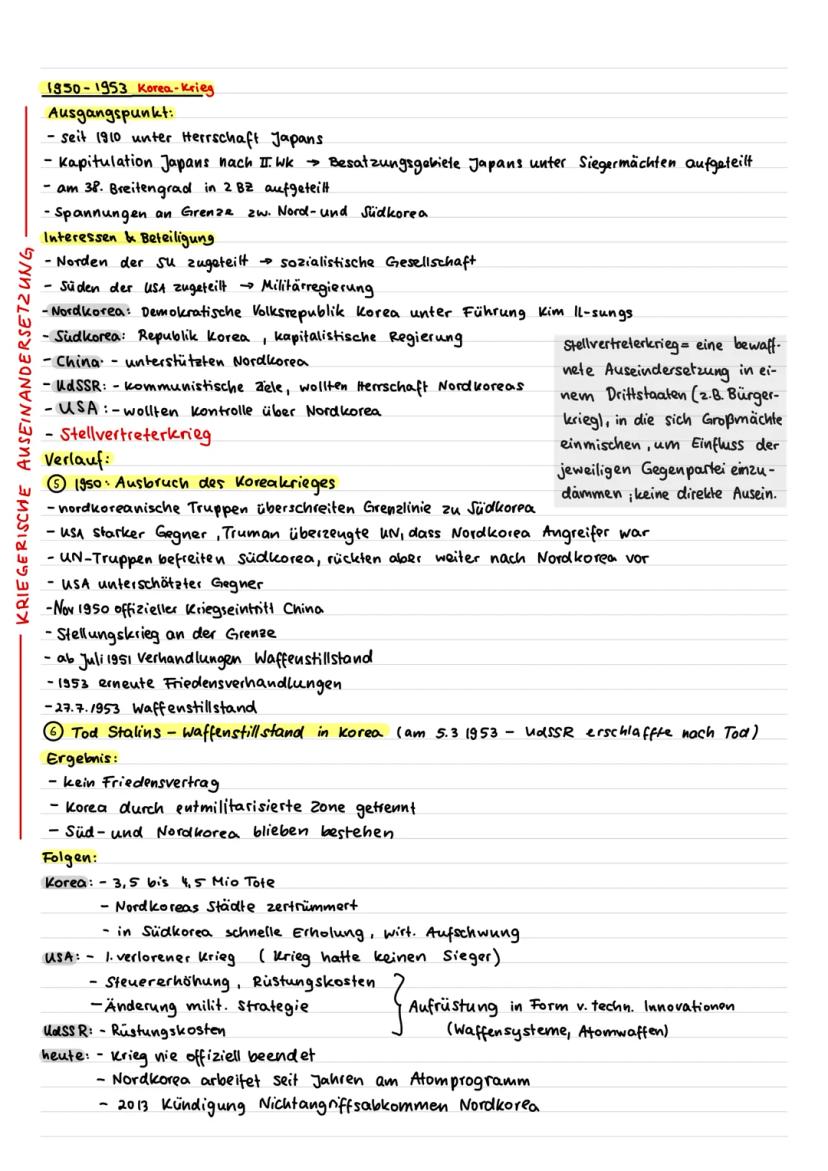 1950-1953 Korea-Krieg
Ausgangspunkt:
- seit 1910 unter Herrschaft Japans
- Kapitulation Japans nach II. WK → Besatzungsgebiete Japans unter Siegermächten aufgeteilt
- am 38. Breitengrad in 2 BZ aufgeteilt
- Spannungen an Grenze zw. Nord- und Südkorea
Interessen & Beteiligung
- Norden der SU zugeteilt → sozialistische Gesellschaft
- Süden der USA zugeteilt → Militärregierung
- Nordkorea: Demokratische Volksrepublik Korea unter Führung Kim Il-sungs
- Südkorea: Republik Korea, kapitalistische Regierung
- China: - unterstützten Nordkorea
- UdSSR: - kommunistische Ziele, wollten Herrschaft Nordkoreas
- USA: - wollten Kontrolle über Nordkorea
- Stellvertreterkrieg
Stellvertreterkrieg = eine bewaff-
nete Auseindersetzung in ei-
nem Drittstaaten (z.B. Bürger-
krieg), in die sich Großmächte
einmischen, um Einfluss der
jeweiligen Gegenpartei einzu-
dämmen; keine direkte Ausein.
Verlauf:
⑤ 1950: Ausbruch des Koreakrieges
- nordkoreanische Truppen überschreiten Grenzlinie zu Südkorea
- USA starker Gegner, Truman überzeugte UN, dass Nordkorea Angreifer war
- UN-Truppen befreiten Südkorea, rückten aber weiter nach Nordkorea vor
- USA unterschätzter Gegner
- Nov 1950 offizieller Kriegseintritt China
- Stellungskrieg an der Grenze
- ab Juli 1951 Verhandlungen Waffenstillstand
- 1953 erneute Friedensverhandlungen
- 27.7.1953 Waffenstillstand
⑥ Tod Stalins - Waffenstillstand in Korea (am 5.3 1953 - UdSSR erschlaffte nach Tod)
Ergebnis:
- kein Friedensvertrag
- Korea durch entmilitarisierte Zone getrennt
- Süd- und Nordkorea blieben bestehen
KRIEGERISCHE AUSEINANDERSETZUNG
Folgen:
Korea: - 3,5 bis 4,5 Mio Tote
- Nordkoreas Städte zertrümmert
- in Südkorea schnelle Erholung, wirt. Aufschwung
USA: - 1. verlorener Krieg (Krieg hatte keinen Sieger)
- Steuererhöhung, Rüstungskosten
- Änderung milit. Strategie
UdSSR: - Rüstungskosten
Aufrüstung in Form v. techn. Innovationen
(Waffensysteme, Atomwaffen)
heute: - Krieg nie offiziell beendet
- Nordkorea arbeitet seit Jahren am Atomprogramm
- 2013 Kündigung Nichtangriffsabkommen Nordkorea